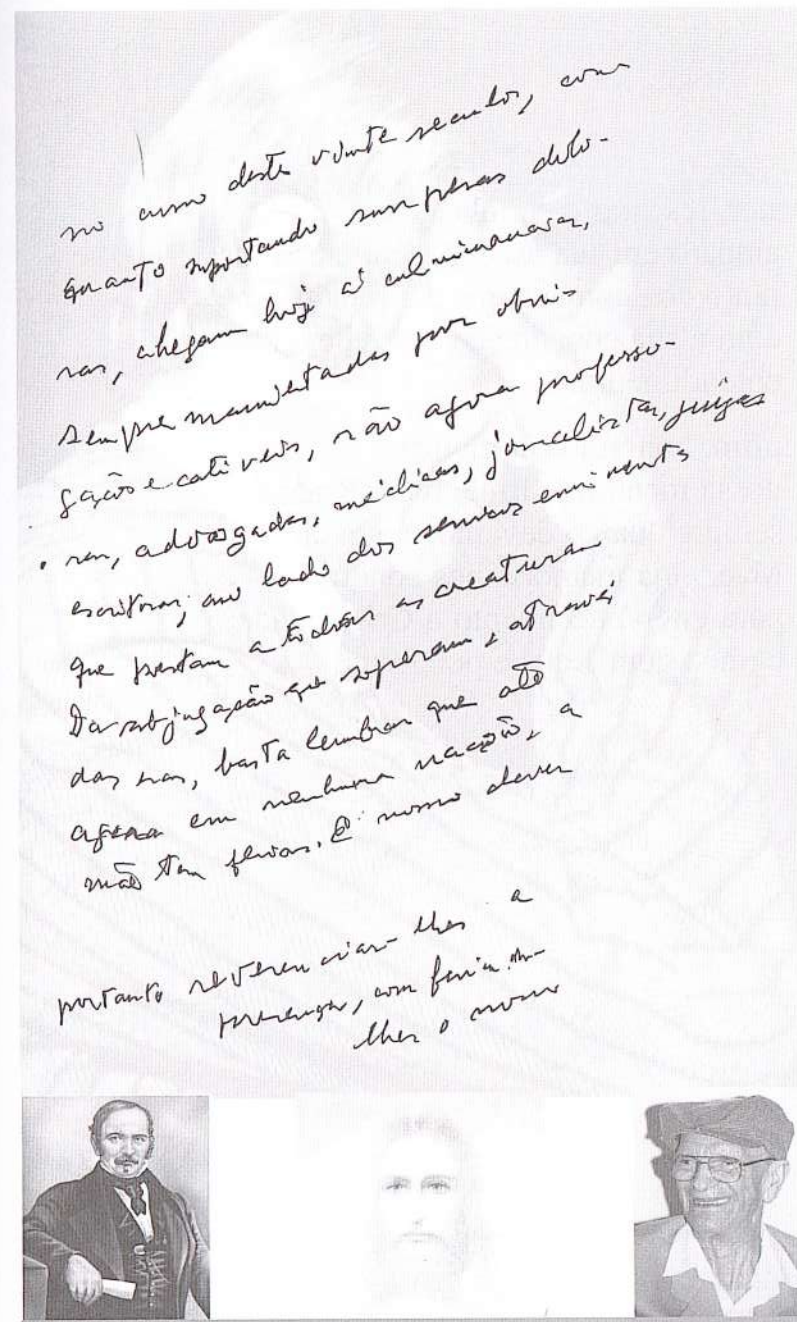 no curso deste vinte seculos, com
quanto suportando sup penas dolo-
ras, chegam hoje as culminancias,
sempre manietadas por obri-
gações e cativeiros, não agora professo-
ras, advogadas, médicas, jornalistas, juízas
escritoras, ao lado dos serviços eminentes
que prestam a todas as creaturas
Da subjugação que superam e através
das eras, basta lembrar que até
agora em nenhuma nação, a
mãe tem ferias. É nosso dever
portanto reverenciar-lhes a
presença, com
lhes o nosso